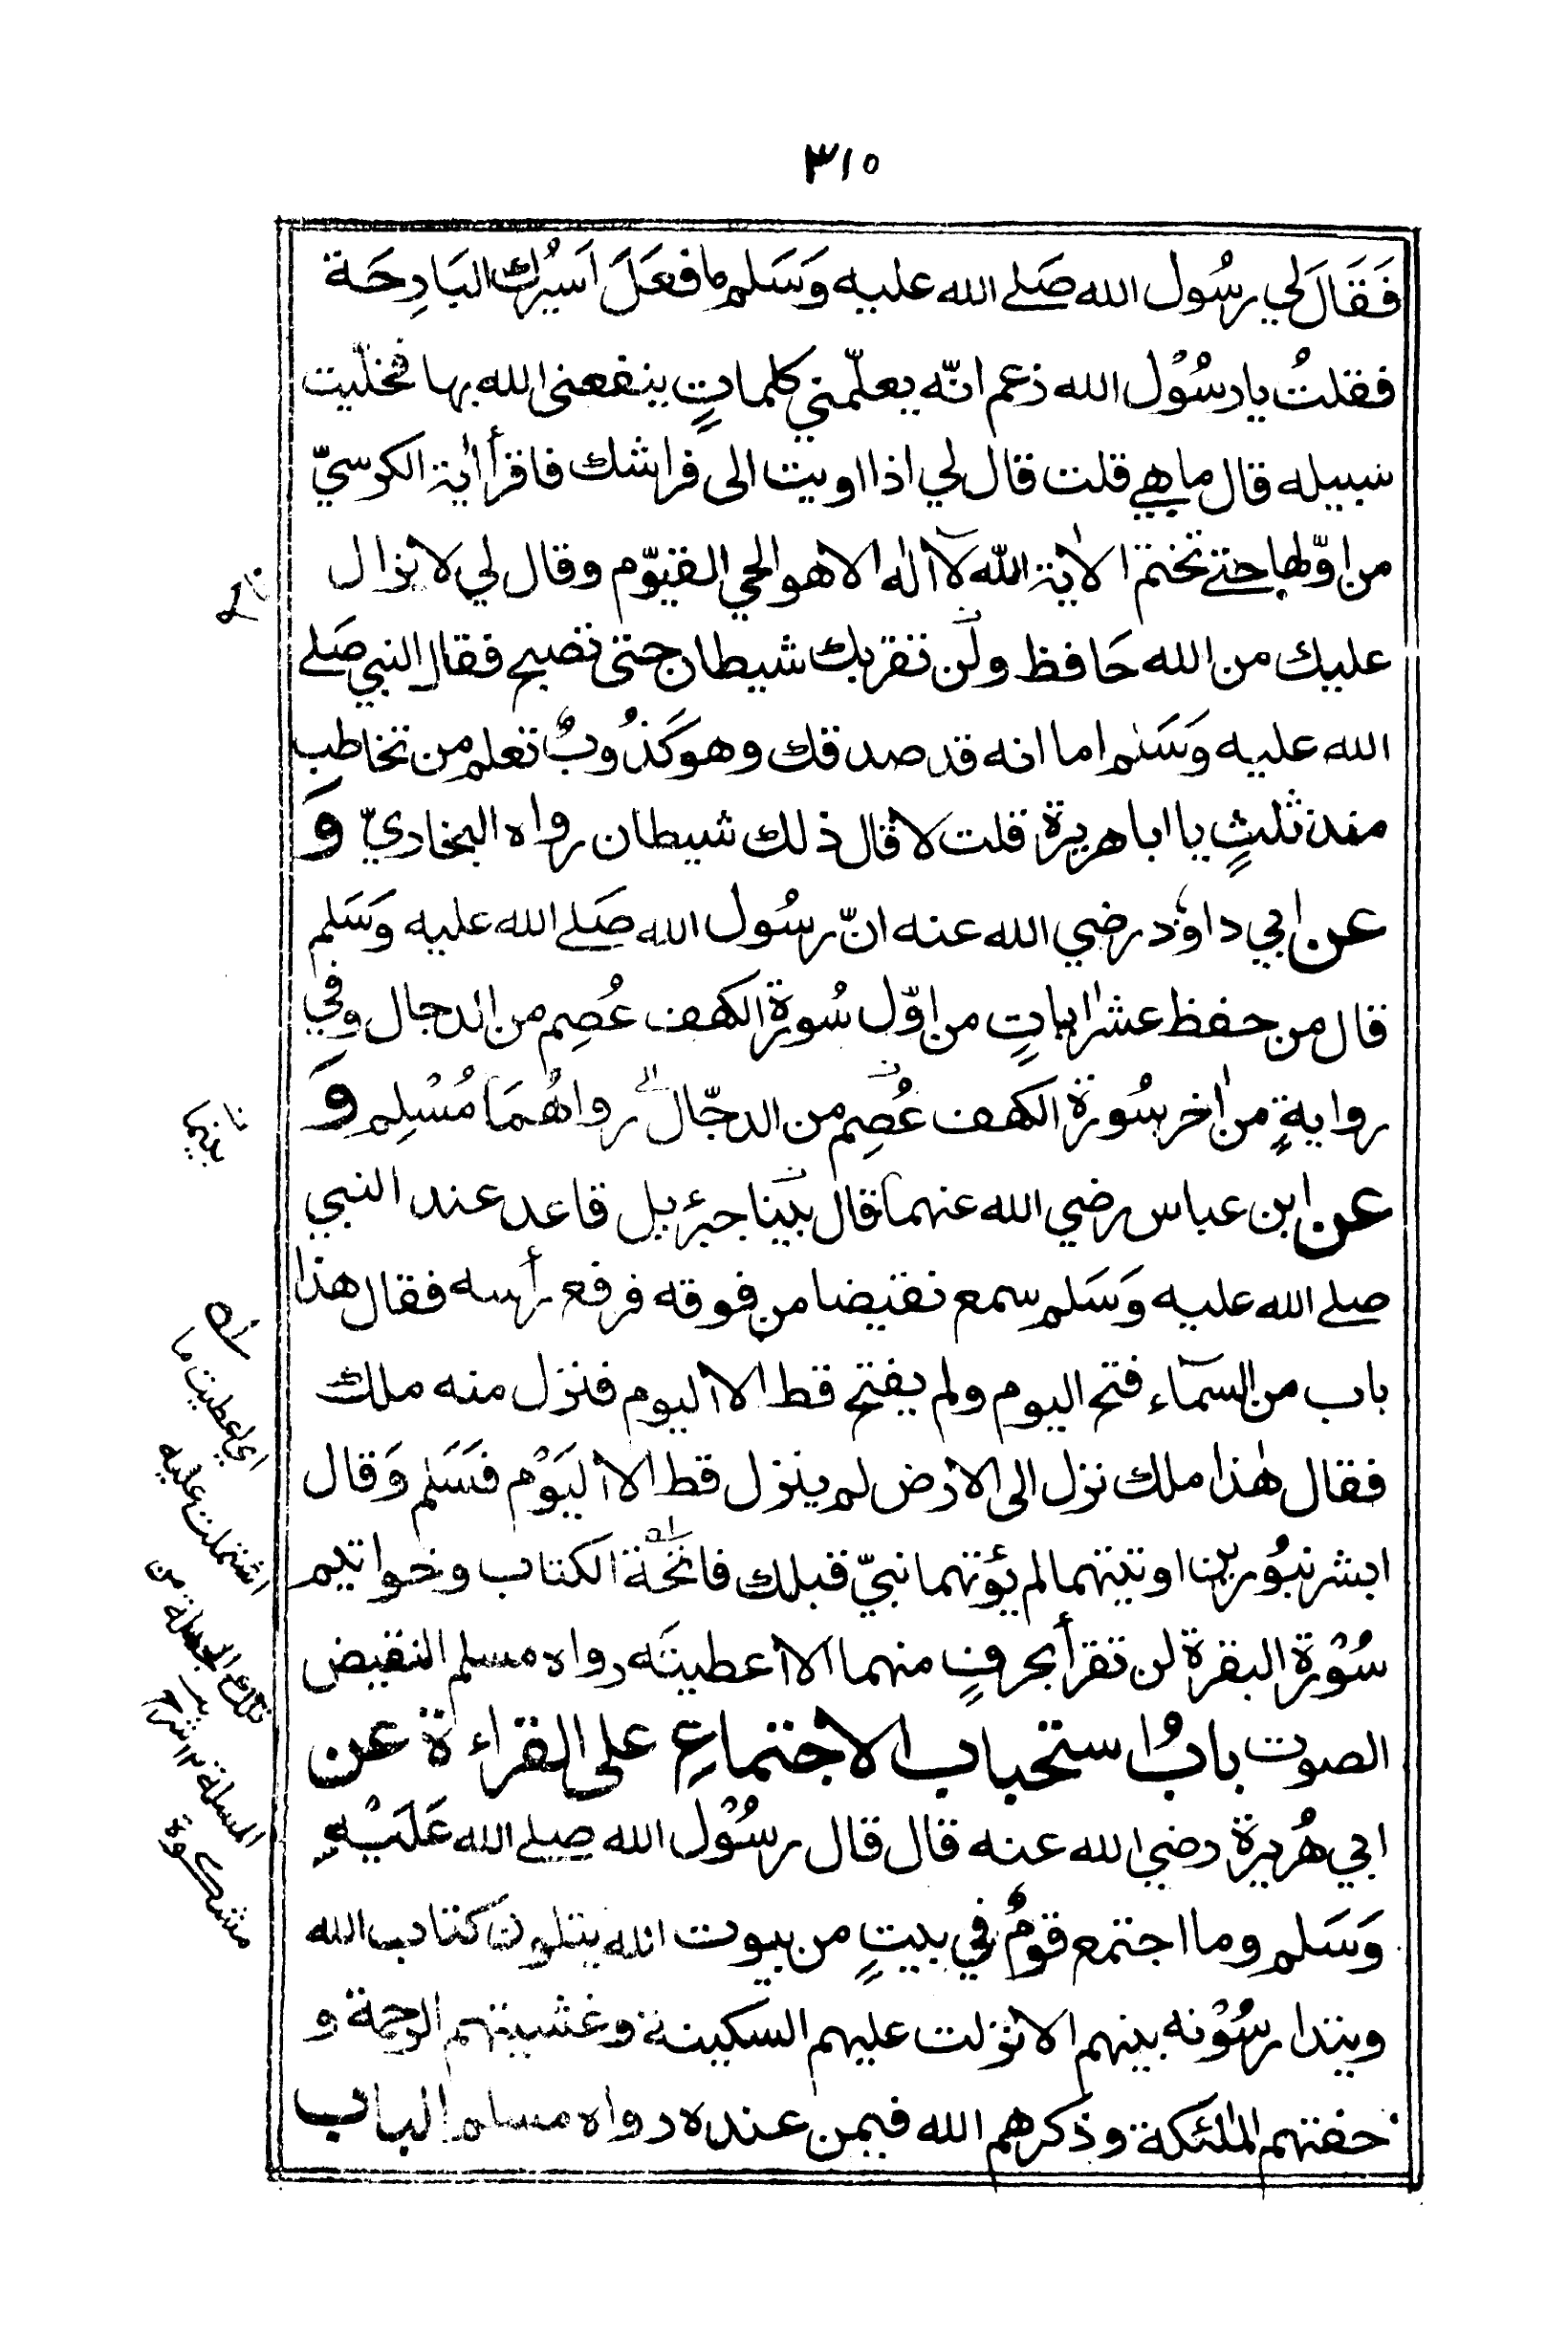 ٣١٥
فَقَالَ لي رسُول الله صَلے الله عليه وَسَلم ما فعَلَ اَسيُرك البَارِحَة
فقلتُ يا رسُوْل الله زعم انّه يعلّمني كلماتٍ ينفعنى الله بها فخلّيت
سبيله قال ما هي قلت قال لي اذا اويت الى فراشك فاقرأ اٰية الكرسيّ
من اوّلها حتے تختم الاٰية اللّٰه لآ اله الا هو الحي القيّوم وقال لي لا يزال
عليك من الله حَافظ ولن تقربك شيطان حتى تصبح فقال النبي صَلے
الله عليه وَسَلم اما انه قد صدقك وهو كَذُوبٌ تعلم من تخاطب
منذ ثلٰثٍ يا ابا هريرة قلت لا قال ذلك شيطان رواه البخاريّ وَ
عن ابي داوٗد رضي الله عنه انّ رسُول الله صَلے الله عليه وَسَلم
قال من حفظ عشر اٰياتٍ من اوّل سُورة الكهف عُصِم من الدجال وفي
روايةٍ من اٰخر سُورة الكهف عُصِم من الدجّال رواهُمَا مُسْلِم وَ
عن ابن عباس رضي الله عنهما قال بينا جبرئيل قاعد عند النبي
صلے الله عليه وَسَلم سمع نقيضا من فوقه فرفع رأسه فقال هذا
باب من السمآء فتح اليوم ولم يفتح قط الا اليوم فنزل منه ملك
فقال هٰذا ملك نزل الى الارض لم ينزل قط الا اليَوْم فسَلم وَقال
ابشر بنُورين اوتيتهما لم يؤتهما نبيّ قبلك فاتحَة الكتاب وخواتيم
سُوْرة البقرة لن تقرأ بحرفٍ منهما الا اعطيتَه رواه مسلم النقيض
الصوت بابُ استحباب الاجتماعِ على القراءة عن
ابي هُريرة رضي الله عنه قال قال رسُوْل الله صلے الله عَلَيْهِ
وَسَلم وما اجتمع قومٌ في بيتٍ من بيوت الله يتلون كتاب الله
ويتدارسُوْنه بينهم الا نزلت عليهم السكينة وغشيتهم الرحمة و
حفتهم الملٰئكة وذكرهم الله فيمن عنده رواه مسلم الباب
بينما
اي اعطيت ما
اشتملت عليه
تلك الجملة من
المسئلة ١٢ شرح
مشكوة